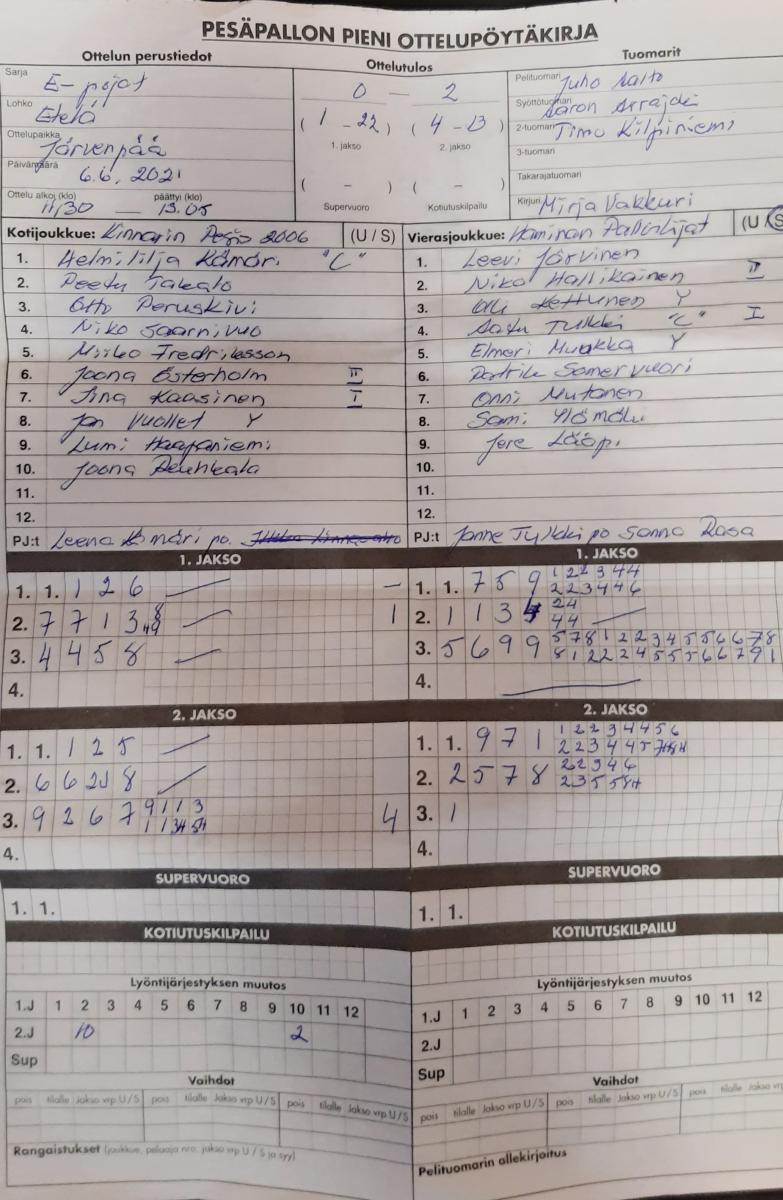 PESÄPALLON PIENI OTTELUPÖYTÄKIRJA
Ottelun perustiedot
Ottelutulos
Tuomarit
Sarja
E-pojat
Lohko
Etelä
Ottelupaikka
Järvenpää
Päivämäärä
6.6.2021
Ottelu alkoi (klo) päättyi (klo)
11/30 — 13.05
0 — 2
(1 - 22) (4 - 13)
1. jakso 2. jakso
( - ) ( - )
Supervuoro Kotiutuskilpailu
Pelituomari Juho Aalto
Syöttötuomari Aaron
2-tuomari Timo Kilpiniemi
3-tuomari
Takarajatuomari
Kirjuri Mirja Vakkuri
Kotijoukkue: Kinnarin Pesis 2006 (U / S)
1. Helmililja Kämäri "C"
2. Peetu Takalo
3. Otto Peruskivi
4. Niko Saarnivuo
5. Mirko Fredriksson
6. Joona Österholm II
7. Iina Kaasinen I
8. Jan Vuollet Y
9. Lumi Haapaniemi
10. Joona
11.
12.
PJ:t Leena Kämäri po.
Vierasjoukkue: Haminan Palloilijat (U S
1. Leevi Järvinen
2. Niko Hallikainen II
3. Olli Kettunen Y
4. Aatu Tylkki "C" I
5. Elmeri Muukka Y
6. Patrik Somervuori
7. Onni Mutanen
8. Sami Ylämäki
9. Jere Lääpi
10.
11.
12.
PJ:t Janne Tylkki po Sanna Rasa
1. JAKSO
1. 1. 1 2 6 —
2. 7 7 1 3 1
3. 4 4 5 8
4.
1. JAKSO
1. 1. 7 5 9 1 2 2 3 4 4
2 2 3 4 4 6
2. 1 1 3 24
44
3. 5 6 9 9 5 7 8 1 2 2 3 4 5 5 6 6 7 8
8 1 2 2 2 4 5 5 5 6 6 7 9 1
4.
2. JAKSO
1. 1. 1 2 5
2. 6 6 8
3. 9 2 6 7 9 1 1 3 4
4.
2. JAKSO
1. 1. 9 7 1 1 2 2 3 4 4 5 6
2 2 3 4 4 5
2. 2 5 7 8 2 2 3 4 6
2 3 5 5
3. 1
4.
SUPERVUORO
1. 1.
SUPERVUORO
1. 1.
KOTIUTUSKILPAILU
KOTIUTUSKILPAILU
Lyöntijärjestyksen muutos
1.J 1 2 3 4 5 6 7 8 9 10 11 12
2.J 10 2
Sup
Lyöntijärjestyksen muutos
1.J 1 2 3 4 5 6 7 8 9 10 11 12
2.J
Sup
Vaihdot
pois tilalle Jakso vrp U / S pois tilalle Jakso vrp U / S pois tilalle Jakso vrp U / S
Vaihdot
pois tilalle Jakso vrp U / S pois tilalle Jakso vrp U / S pois tilalle Jakso vrp
Rangaistukset (joukkue, pelaaja nro, jakso vrp U / S ja syy)
Pelituomarin allekirjoitus